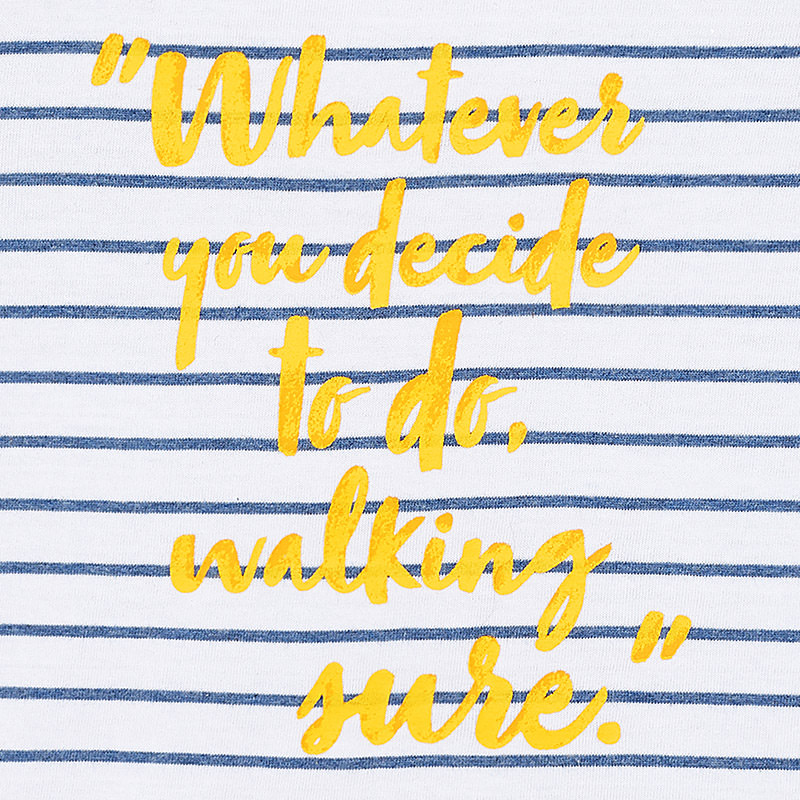 "Whatever
you decide
to do,
walking
sure."